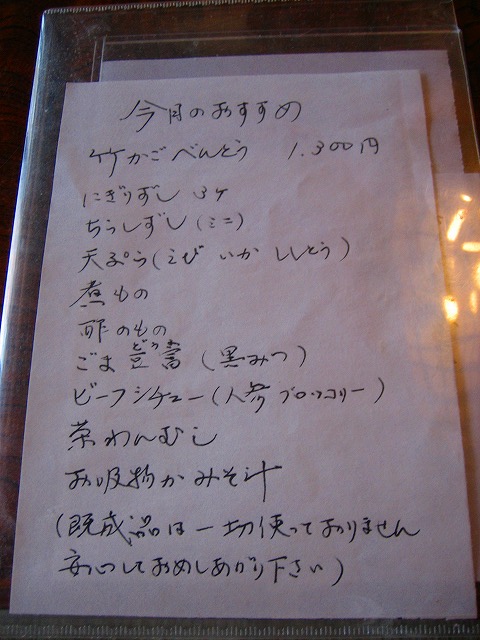 今月のおすすめ
竹かごべんとう 1.300円
にぎりずし 3ケ
ちらしずし(ミニ)
天ぷら(えび いか ししとう)
煮もの
酢のもの
ごま豆富(黒みつ)
ビーフシチュー(人参 ブロッコリー)
茶わんむし
お吸物かみそ汁
(既成品は一切使っておりません
安心しておめしあがり下さい)